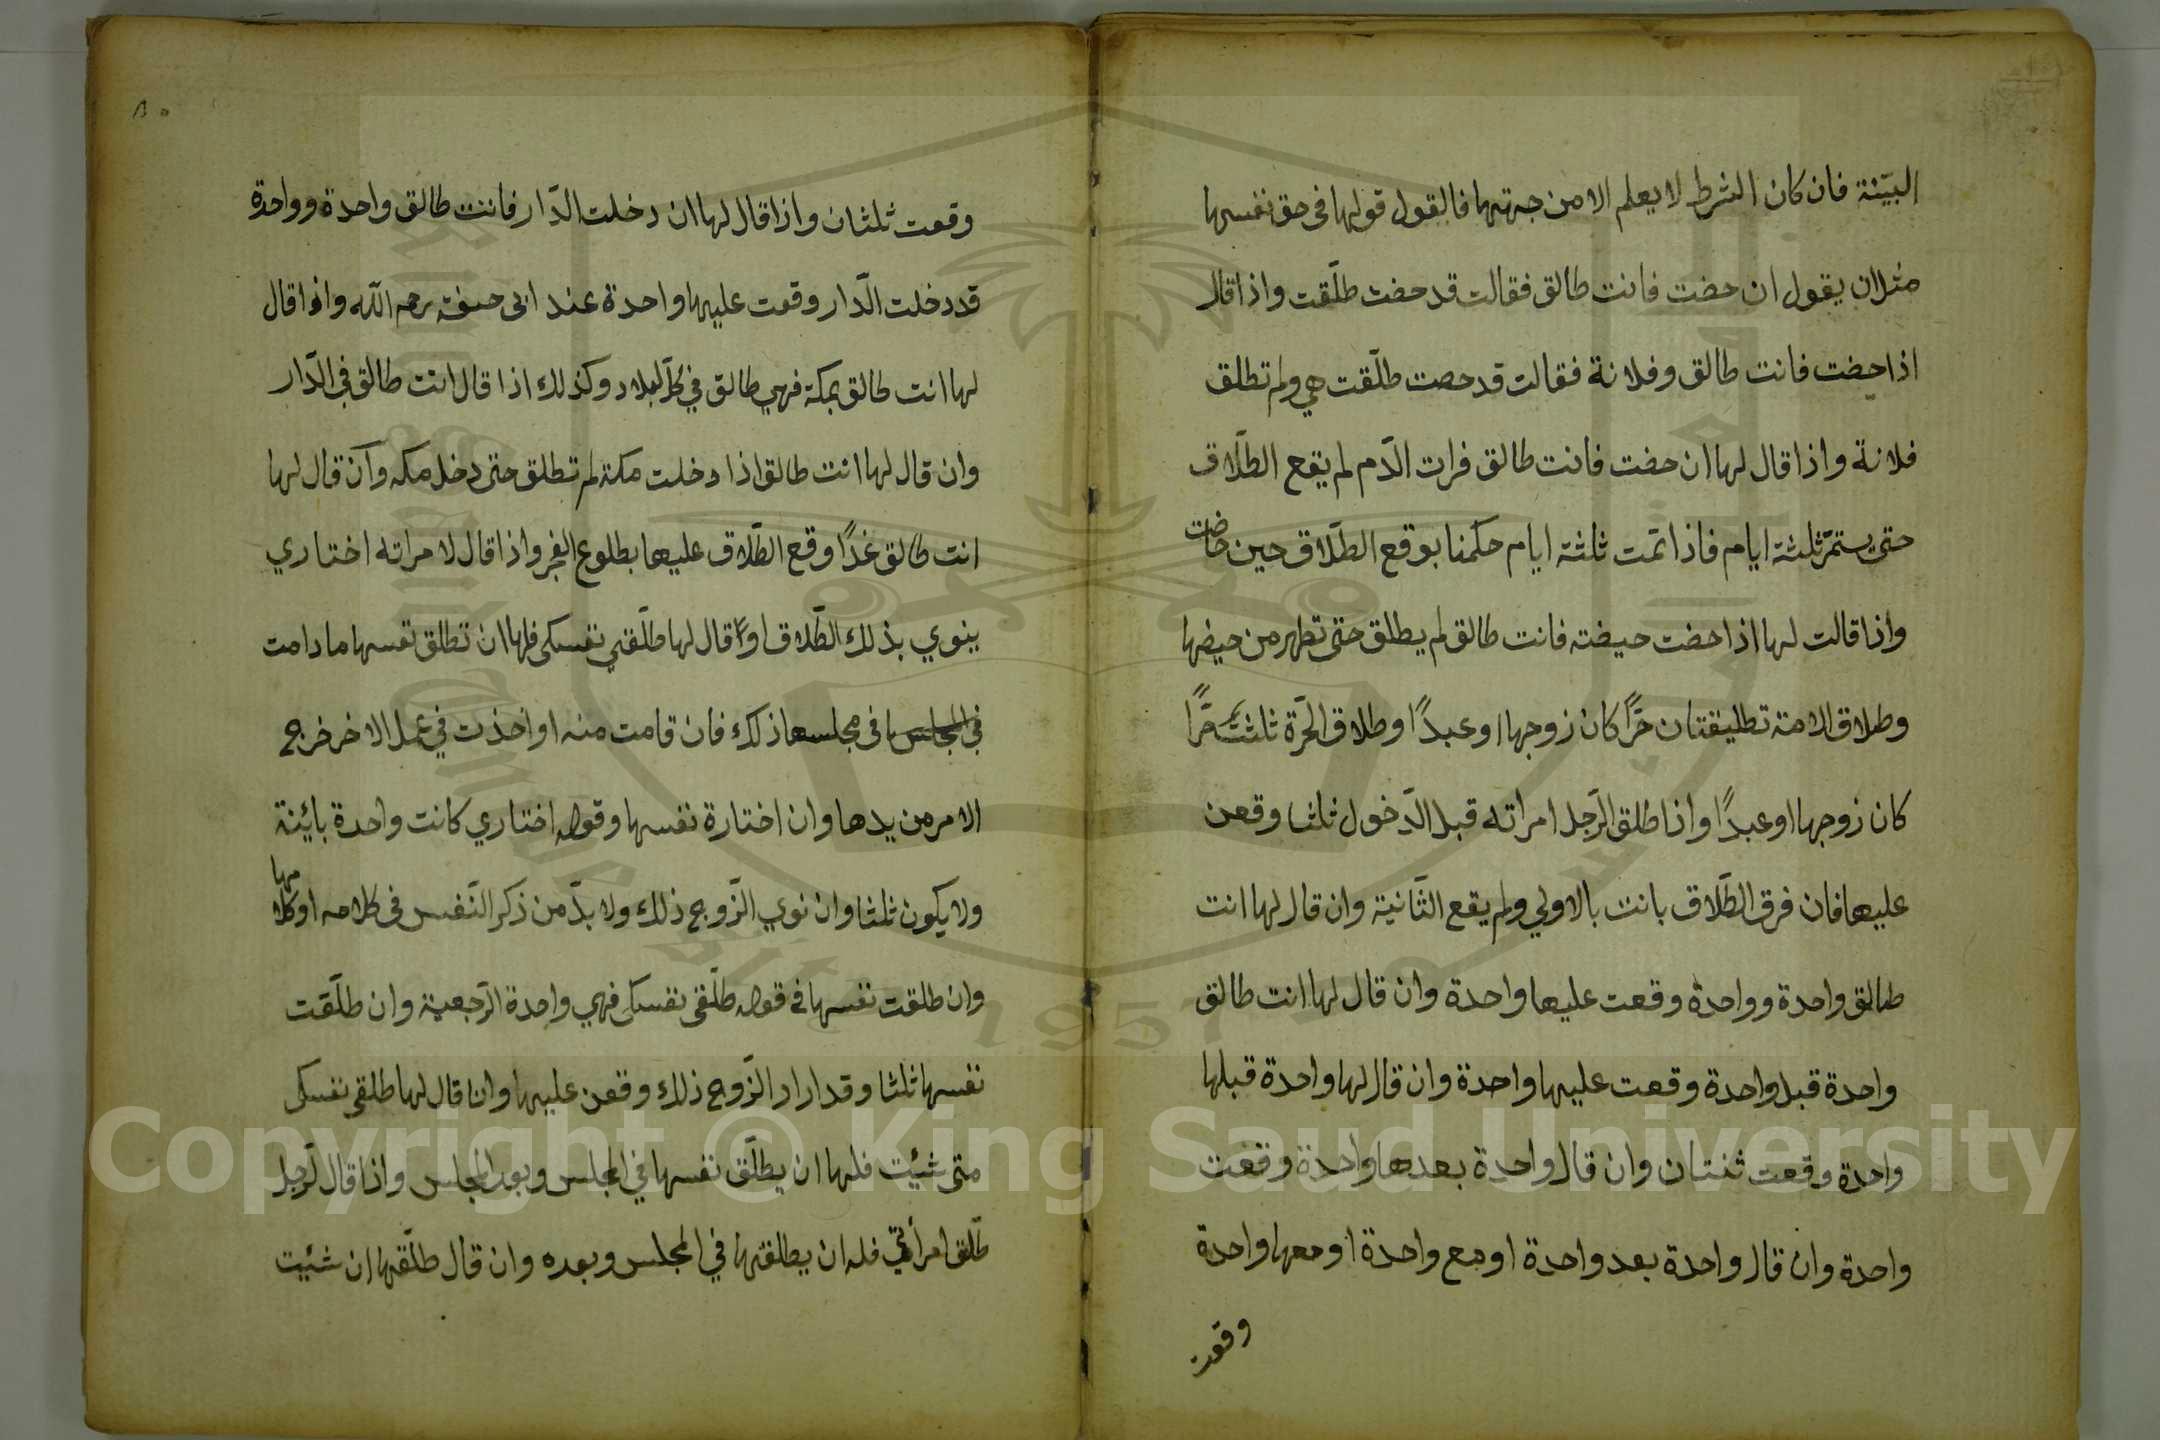 البيّنة فان كان الشرط لا يعلم الا من جهتها فالقول قولها فى حق نفسها
مثلا ان يقول ان حضت فانت طالق فقالت قد حضت طلّقت واذا قال
اذا حضت فانت طالق وفلانة فقالت قد حصت طلّقت هي ولم تطلق
فلانة واذا قال لها ان حضت فانت طالق فرات الدّم لم يقع الطلّاق
حتى يستمرّ ثلثة ايام فاذا تمّت ثلثة ايام حكمنا بوقع الطلّاق حين حاضت
واذا قالت لها اذا حضت حيضته فانت طالق لم يطلق حتى تطهر من حيضها
وطلاق الامة تطليقتان حرًّا كان زوجها او عبدًا وطلاق الحرّة ثلثت حرًّا
كان زوجها او عبدًا واذا طلق الرّجل امراته قبل الدّخول ثلثا وقعن
عليها فان فرق الطلّاق بانت بالاولي ولم يقع الثّانية وان قال لها انت
طالق واحدة وواحدة وقعت عليها واحدة وان قال لها انت طالق
واحدة قبل واحدة وقعت عليها واحدة وان قال لها واحدة قبلها
واحدة وقعت ثنتان وان قال واحدة بعدها واحدة وقعت
واحدة وان قال واحدة بعد واحدة او مع واحدة او معها واحدة
وقعت
٨٥
وقعت ثلثان واذا قال لها ان دخلت الدّار فانت طالق واحدة وواحدة
قد دخلت الدّار وقعت عليها واحدة عند ابى حنيفة رحمه الله واذا قال
لها انت طالق بمكة فهي طالق في كلّ البلاد وكذلك اذا قال انت طالق في الدّار
وان قال لها انت طالق اذا دخلت مكة لم تطلق حتى دخل مكه وان قال لها
انت طالق غدًا وقع الطلّاق عليها بطلوع الفجر واذا قال لامراته اختاري
ينوي بذلك الطلّاق او قال لها طلّقي نفسكى فلها ان تطلق نفسها ما دامت
في المجلس فى مجلسها ذلك فان قامت منه او اخذت في عمل الاخر خرج
الامر من يدها وان اختارة نفسها وقوله اختاري كانت واحدة بائنة
ولا يكون ثلثا وان نوي الزّوج ذلك ولا بدّ من ذكر النّفس فى كلامه او كلامها
وان طلقت نفسها فى قوله طلّقى نفسكى فهي واحدة الرّجعية وان طلّقت
نفسها ثلثا وقد اراد الزّوج ذلك وقعن عليها وان قال لها طلقى نفسكى
متى شئيت فلها ان يطلّق نفسها في المجلس وبعد المجلس واذا قال لرّجل
طلّق امرأتي فله ان يطلقتها في المجلس وبعده وان قال طلّقها ان شئيت
Copyright © King Saud University
1957